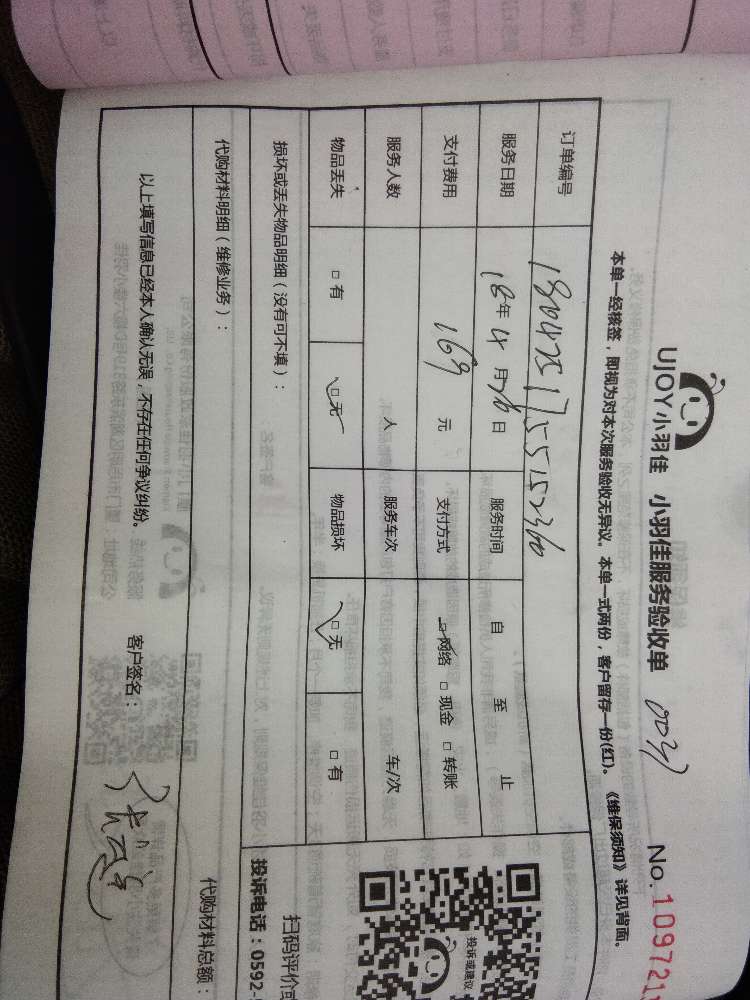 UJOY小羽佳 小羽佳服务验收单 003) No.109721
本单一经核签，即视为对本次服务验收无异议。本单一式两份，客户留存一份(红)。《维保须知》详见背面。
订单编号
服务日期 18年4月26日 服务时间 自 至 止
支付费用 169 元 支付方式 □网络 □现金 □转账
服务人数 人 服务车次 车/次
物品丢失 □有 □无 物品损坏 □无 □有
投诉或建议
损坏或丢失物品明细（没有可不填）：
扫码评价或
投诉电话：0592-
代购材料明细（维修业务）：
代购材料总额：
以上填写信息已经本人确认无误，不存在任何争议纠纷。 客户签名：